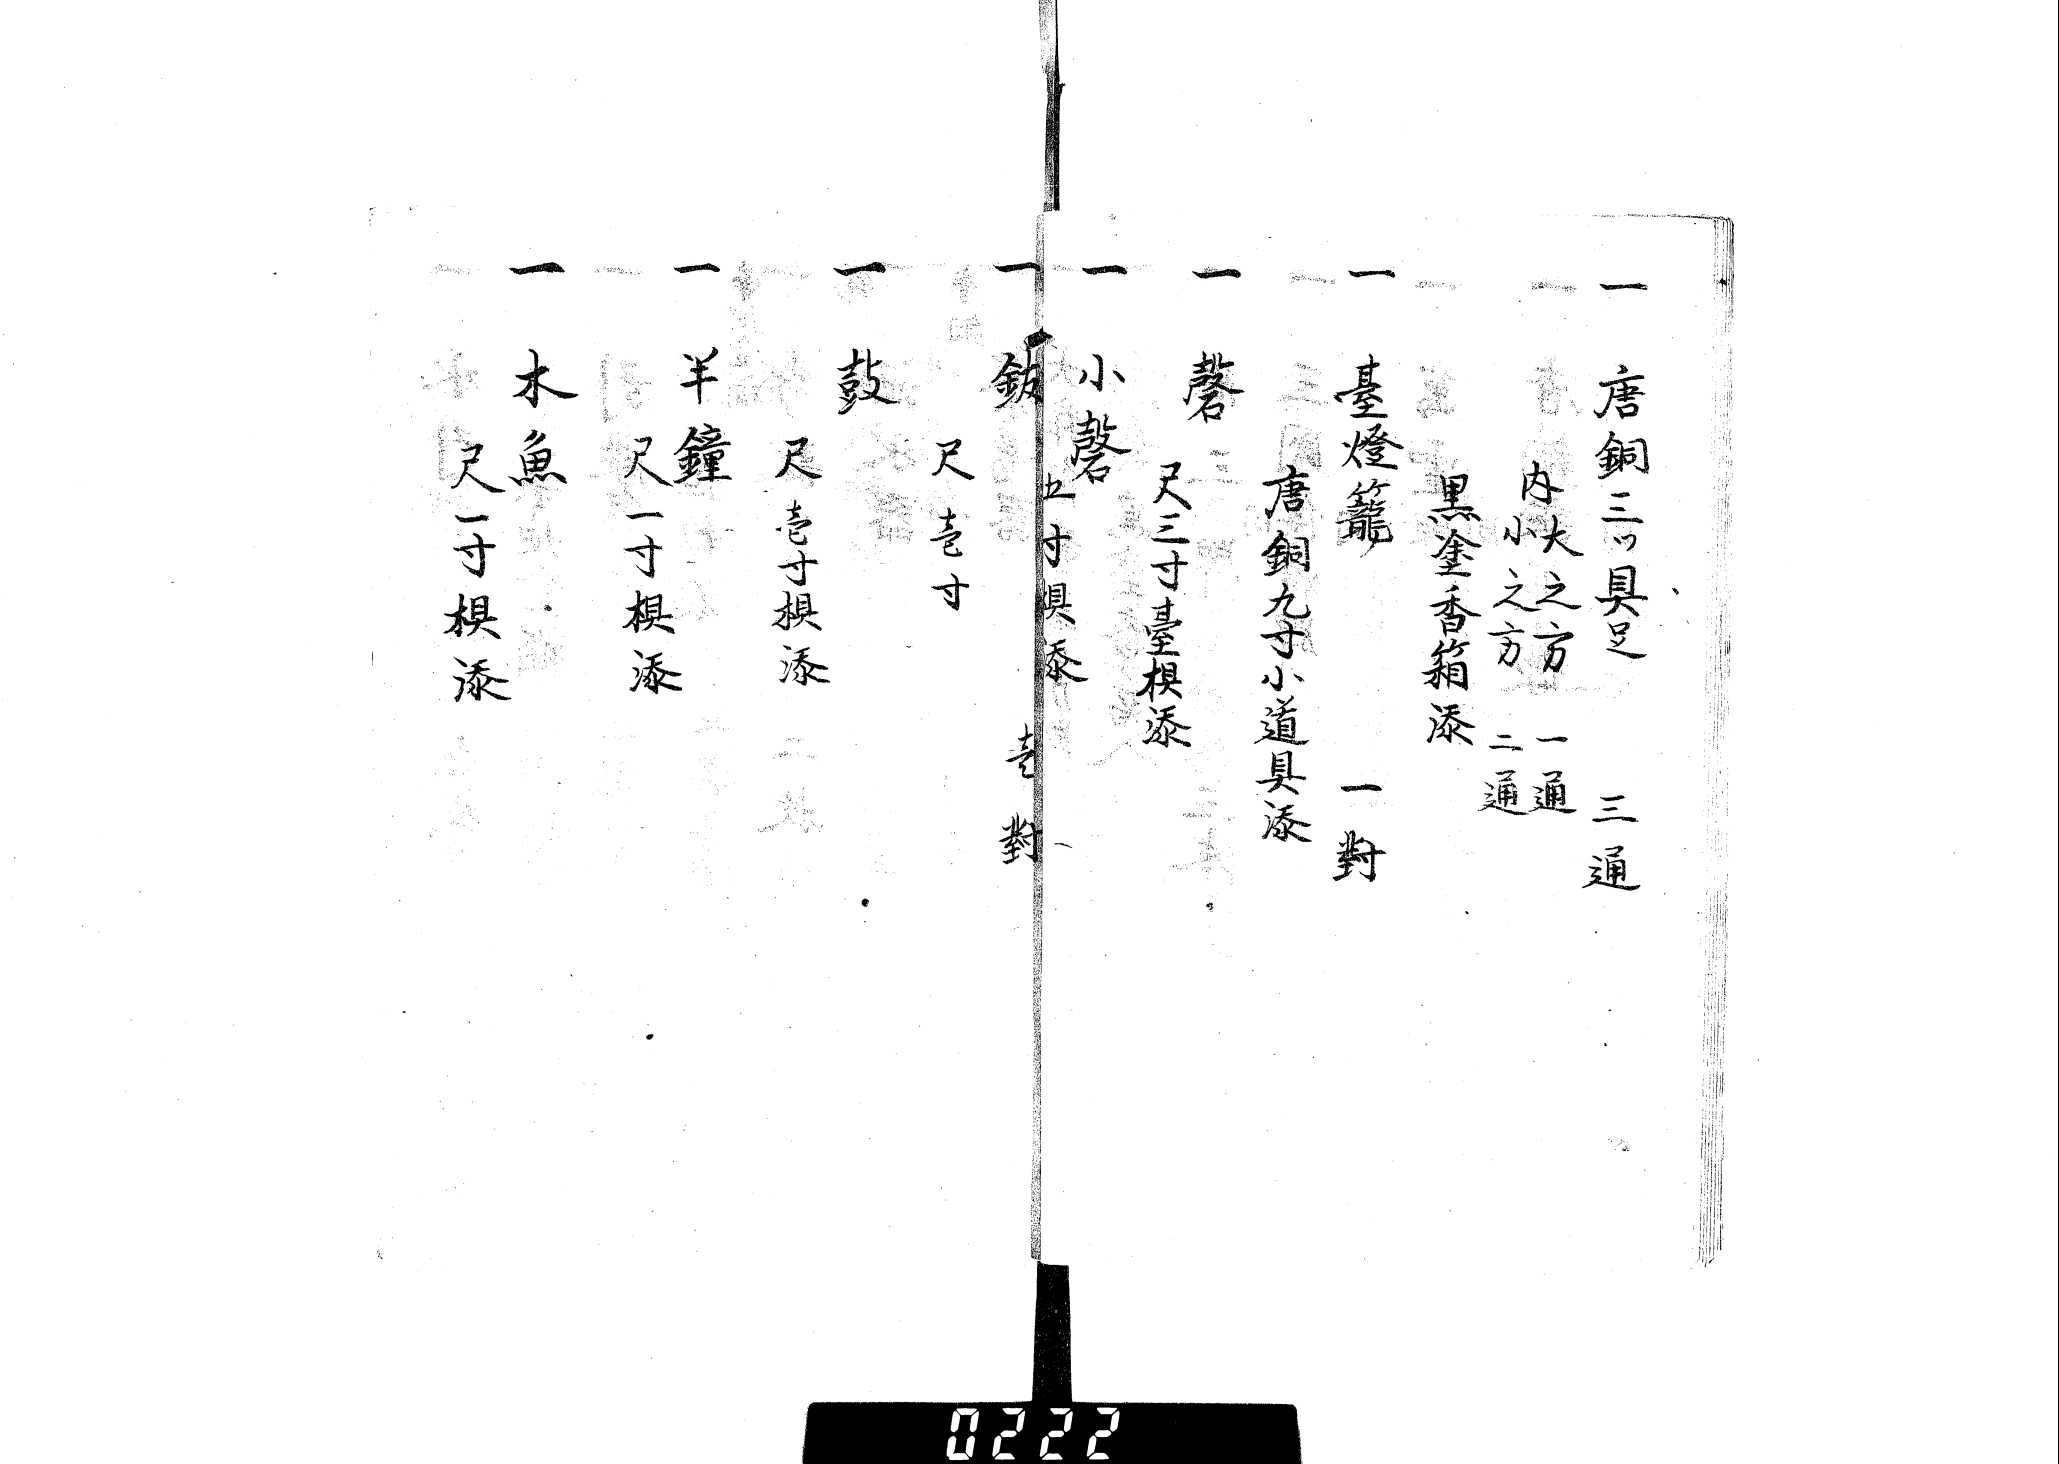 一 唐銅三ツ具足 三通
内大之方 一通
小之方 二通
黒塗香箱添
一 臺燈籠 一對
唐銅九寸小道具添
一 磬
尺三寸臺椇添
一 小磬
五寸椇添
一 鈸 壱對
尺壱寸
一 鼓
尺壱寸椇添
一 半鐘
尺一寸椇添
一 木魚
尺一寸椇添
0222